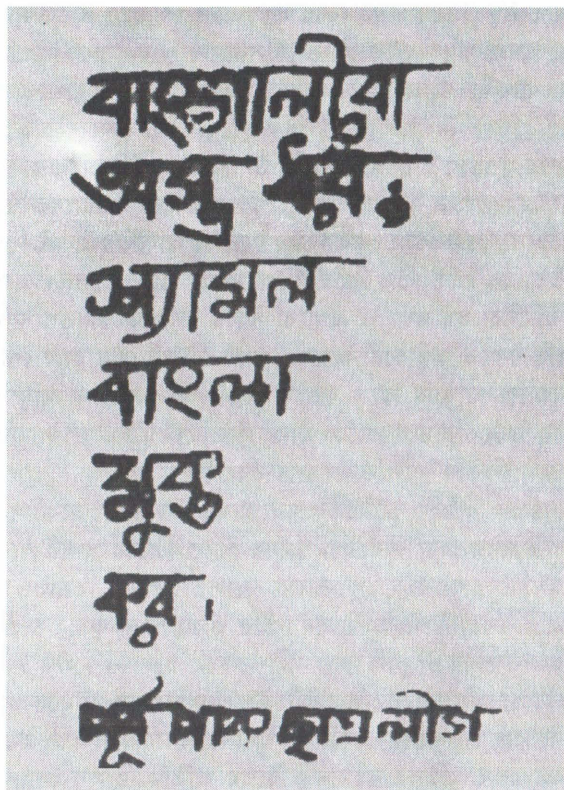 বাঙ্গালীরা
অস্ত্র ধর
শ্যামল
বাংলা
মুক্ত
কর ।
পূর্ব পাক ছাত্র লীগ